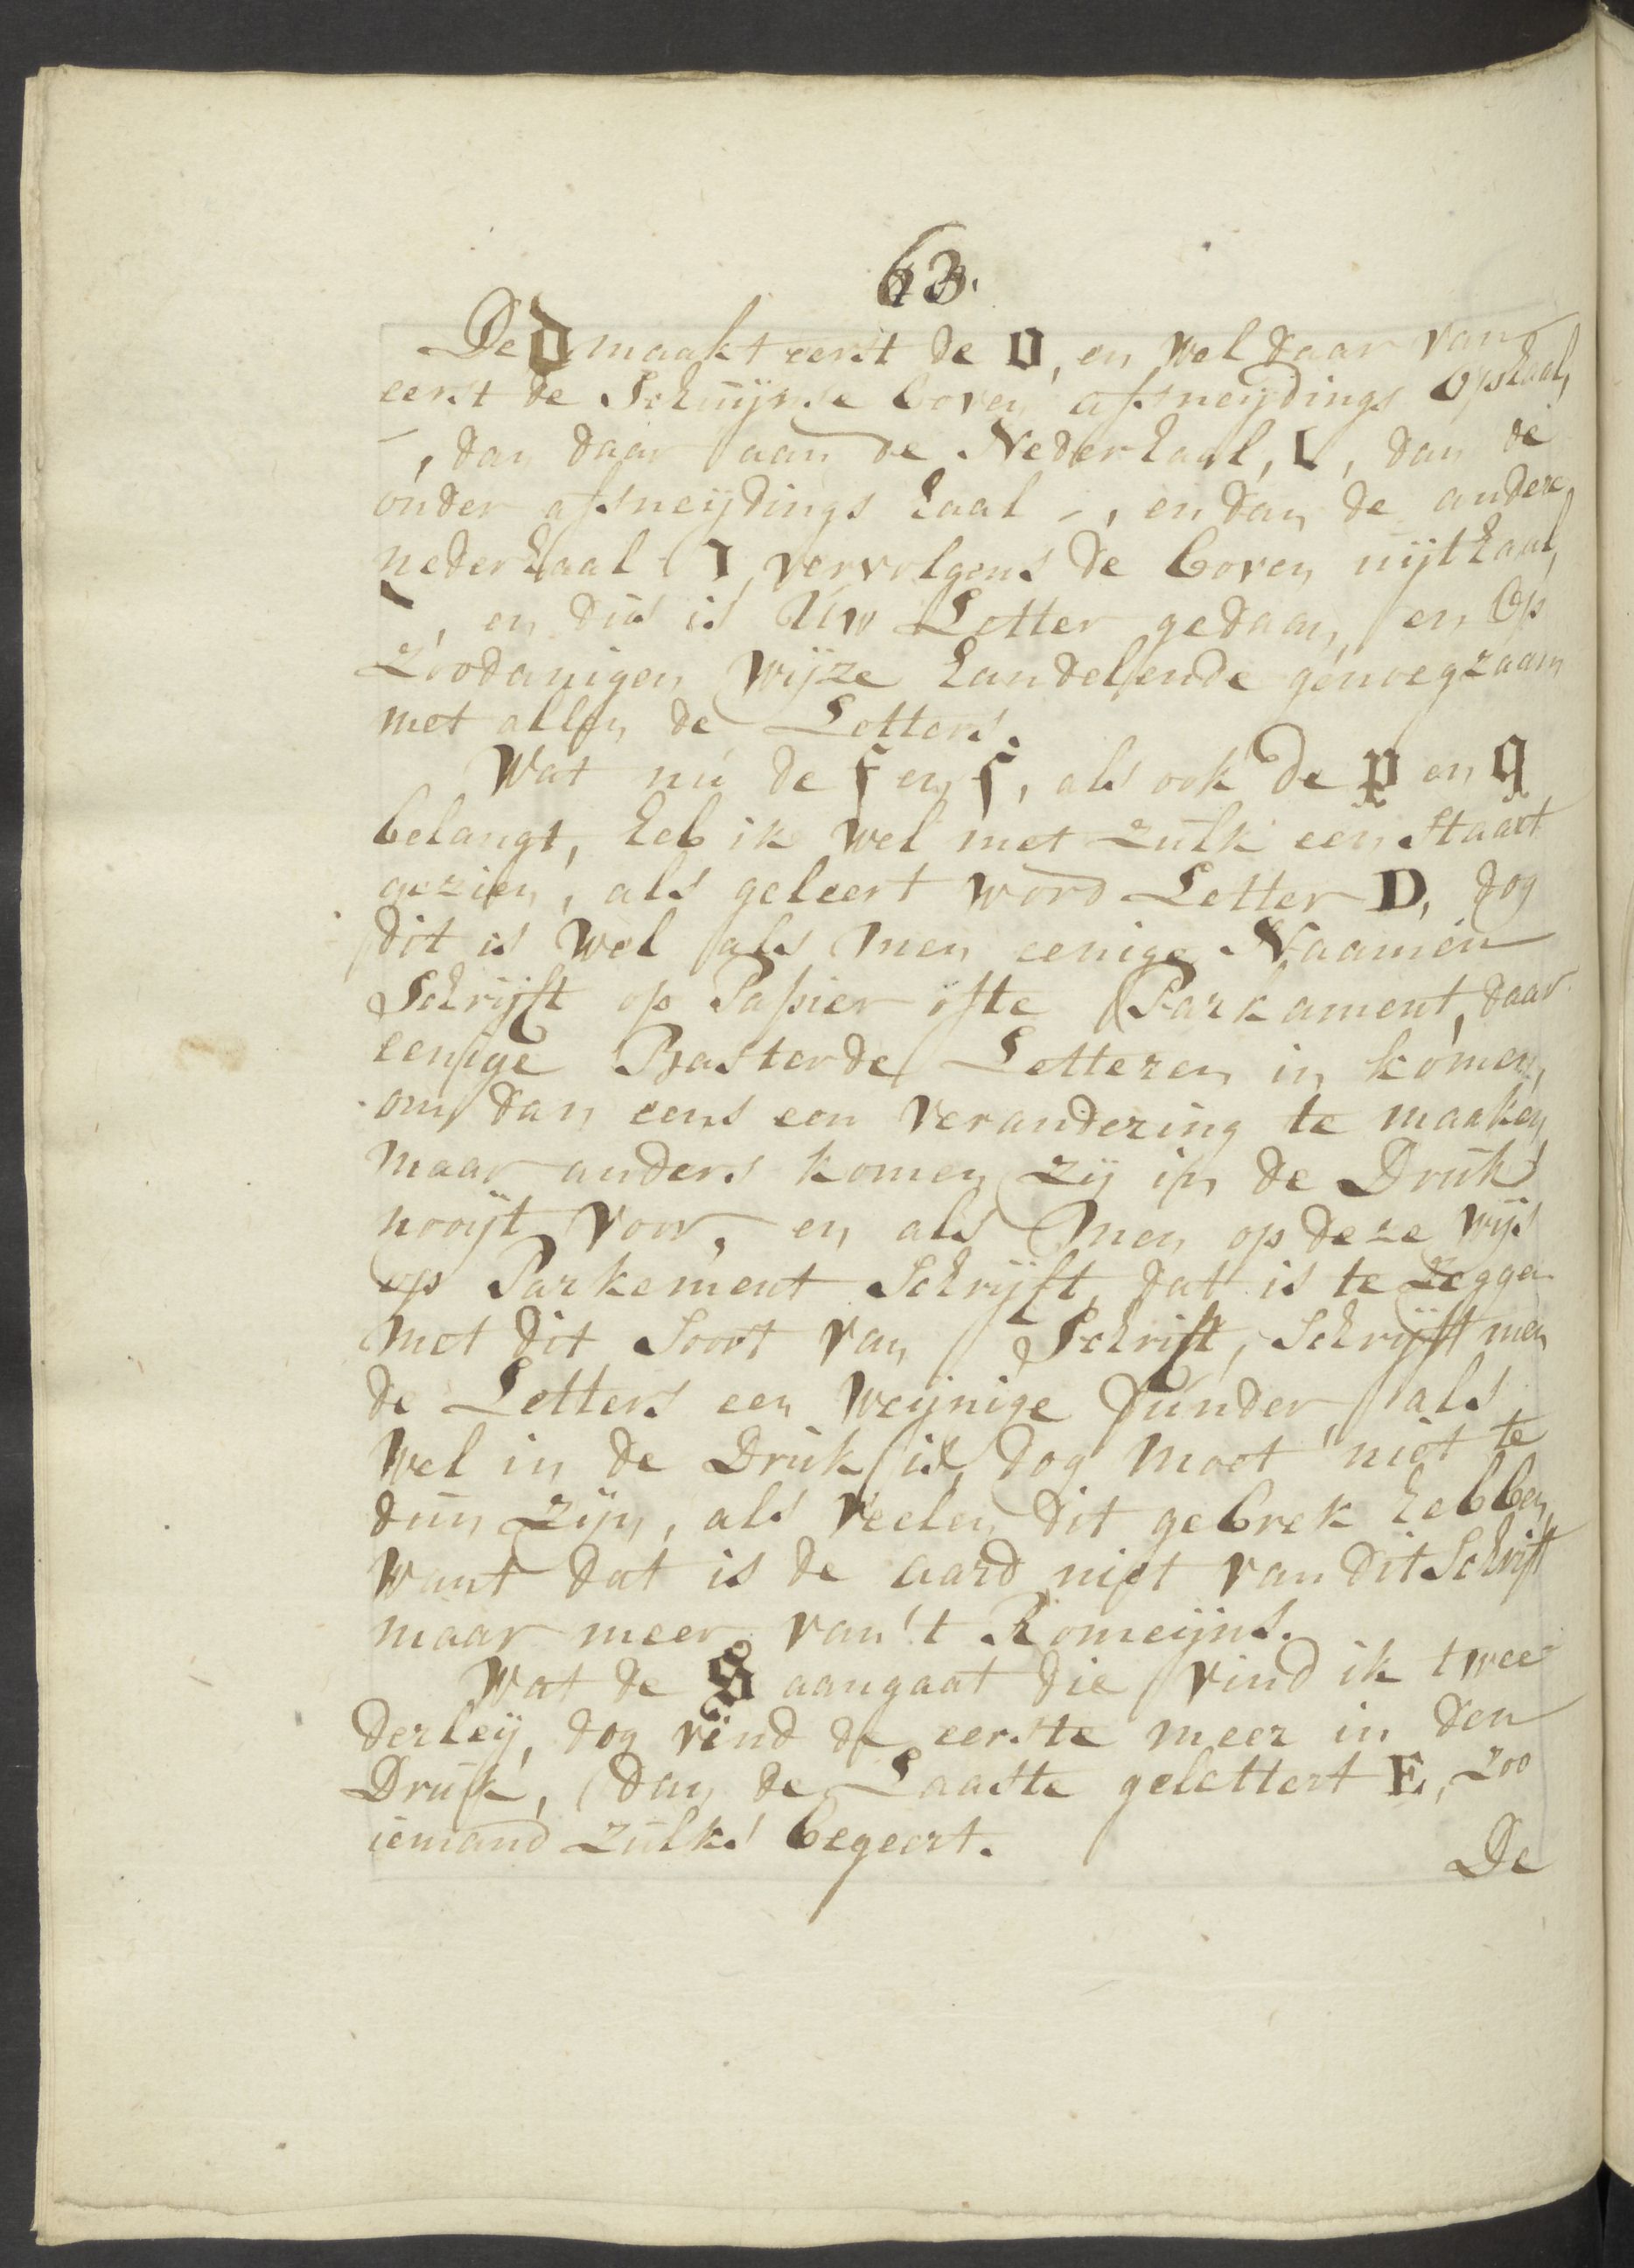 63.
De d maakt eerst de o, en wel daar van
eerst de Schuijnse boven afsneijdings Ophaal,
–, dan daar aan de Nederhaal, l, dan de
onder afsneijdings haal –, en dan de andere
nederhaal ı vervolgens de boven uijthaal,
\, en dus is Uw Letter gedaan, en Op
Zoodanigen wijze handelende genoegzaam
met allen de Letters.
Wat nu de f en ſ, als ook de p en q
belangt, heb ik wel met zulk een Staart
gezien, als geleert word Letter D, dog
dit is wel als men eenige Naamen
Schrijft op Papier ofte Parkament, daar
eenige Basterde Letteren in komen,
om dan eens een verandering te maaken,
maar anders komen zij in de Druk
nooijt voor, en als men op deze wijs
op Parkement Schrijft, dat is te Zeggen
met dit Soort van Schrift, Schrijft men
de Letters een weijnige dunder, als
wel in de Druk is, dog moet niet te
dun zijn, als veelen dit gebrek hebben,
want dat is de aard niet van dit Schrift
maar meer van 't Romeijns.
Wat de S aangaat die vind ik twee
derleij, dog vind de eerste meer in den
Druk, dan de Laaste gelettert E, zoo
iemand zulks begeert.
De